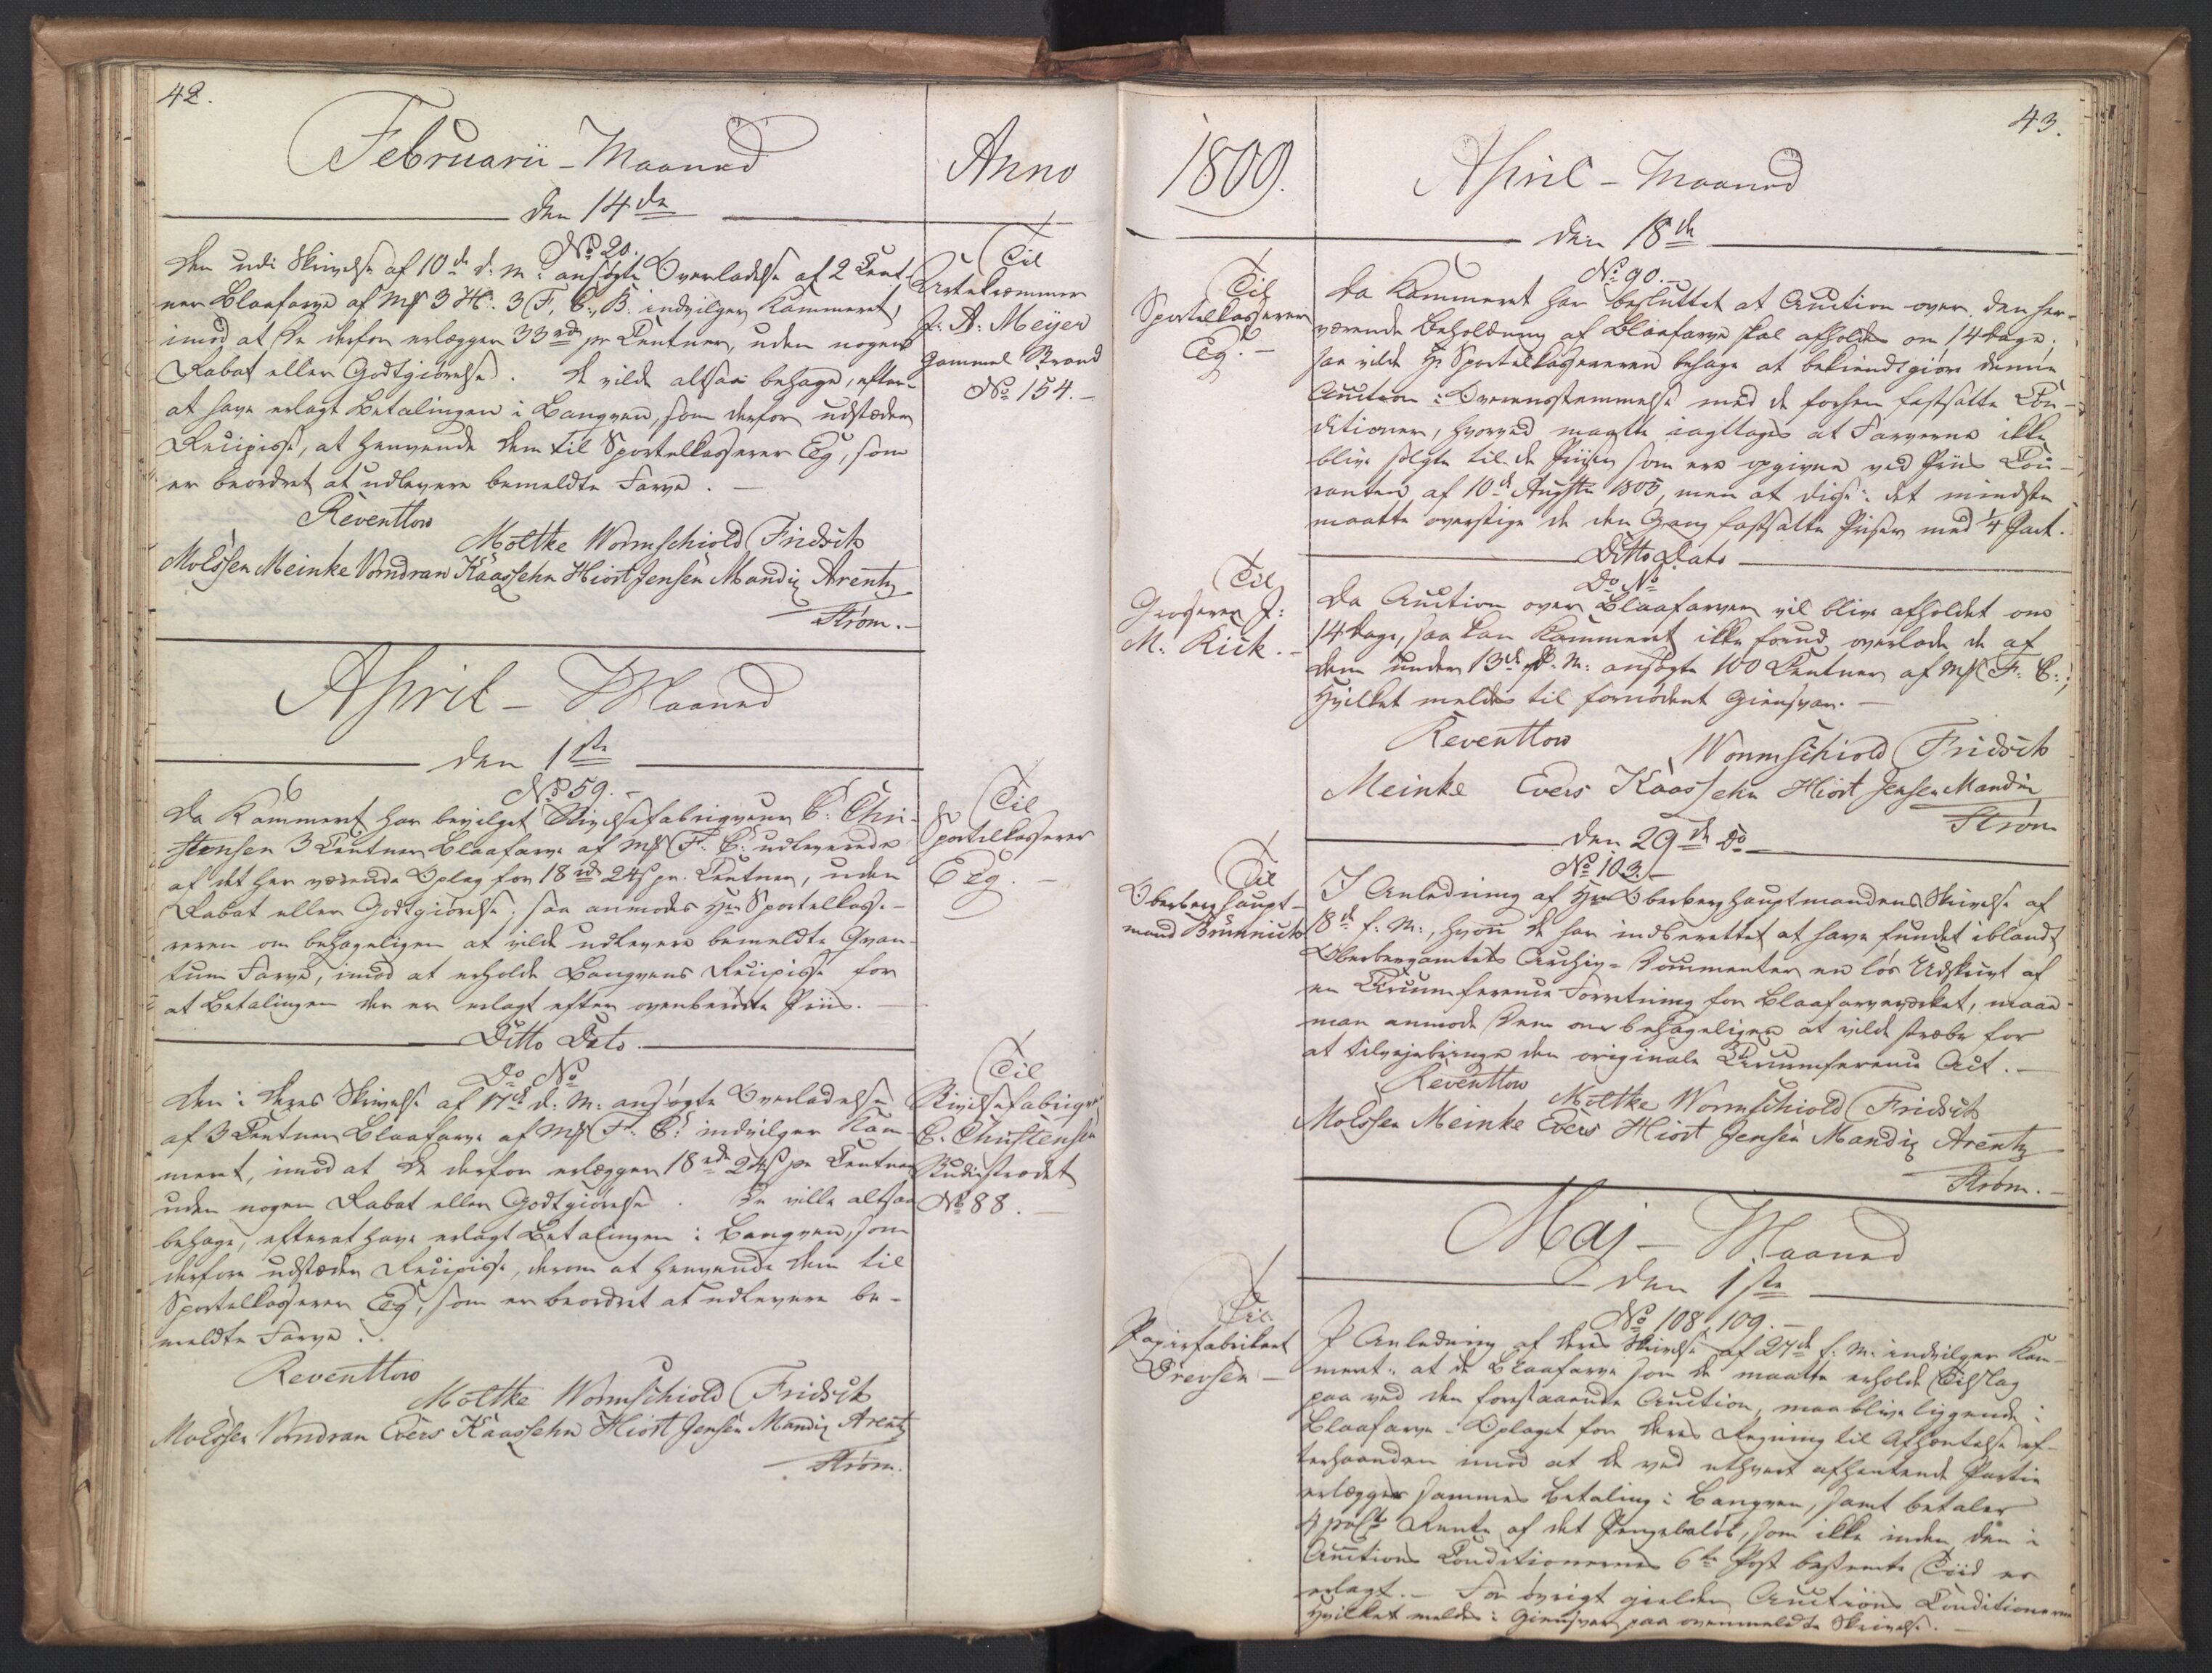 42.
Februarii - Maaned
den 14de
No 20.
Den udi Skrivelse af 10de d: M: ansøgte Overladelse af 2 Cent-
ner Blaafarve af Mk 3 H: 3 F, C:, B. indvilger Kammeret,
imod at De derfor erlægger 33 rd pr Centner, uden nogen
Rabat eller Godtgiørelse. De vilde altsaa behage, efter-
at have erlagt Betalingen i Banqven, som derfor udstæder
Recipisse, at henvende Dem til Sportelkasserer Eeg, som
er beordret at udlevere bemeldte Farve. —
Reventlow
Moltke Wormskiold Fridsch
Molssen Meinke Vorndran Kaassehn Hiort Jensen Mandix Arentz
Strøm. —
April - Maaned
den 1ste
No 59. —
Da Kammeret har bevilget Stivelsefabriqveur C: Chri-
stensen 3 Centner Blaafarve af Mk F. C: udleverede
af det her værende Oplag for 18 rd 24 s pr. Centner, uden
Rabat eller Godtgiørelse, saa anmodes Hr Sportelkasse-
reren om behageligen at vilde udlevere bemeldte Qvan-
tum Farve, imod at erholde Banqvens Recipisse for
at Betalingen der er erlagt efter ovenberørte Priis. —
Ditto Dato.
Do No
Den i Deres Skrivelse af 17de d: M: ansøgte Overladelse
af 3 Centner Blaafarve af Mk F. C: indvilger Kam-
meret, imod at De derfor erlægger 18 rd 24 s pr Centner
uden nogen Rabat eller Godtgiørelse. De ville altsaa
behage, efterat have erlagt Betalingen i Banqven, som
derfore udstæder Recipisse, derom at henvende Dem til
Sportelkasserer Eeg, som er beordret at udlevere be-
meldte Farve.
Reventlow
Moltke Wormskiold Fridsch
Molssen Vorndran Evers Kaassehn Hiort Jensen Mandix Arentz
Strøm.
Anno
Til
Urtekræmmer
J: A: Meyer
Gammel Strand
No 154. —
Til
Sportelkasserer
Eeg. —
Til
Stivelsefabriqv:
C. Christensen
Studistrædet
No 88. —
1809.
Til
Sportelkasserer
Eeg. —
Til
Grosserer J:
M. Kiek. —
Til
Oberberghaupt-
mand Brünnich
Til
Papirfabrikant
Drevsen —
43.
April - Maaned
den 18de
No 90. —
Da Kammeret har besluttet at Auction over den her-
værende Beholdning af Blaafarve skal afholdes om 14 Dage,
saa vilde Hr Sportelkassereren behage at bekiendtgiøre denne
Auction i Overensstemmelse med de forhen fastsatte Con-
ditioner, hvorved maatte iagttages at Farverne ikke
blive solgte til de Priser som ere opgivne ved Priis Cou-
ranten af 10de Augsti 1805, men at disse i det mindste
maatte overstige de den Gang fastsatte Priser med 1/4 Part.
Ditto Dato
Do No
Da Auction over Blaafarven vil blive afholdet om
14 Dage, saa kan Kammeret ikke forud overlade de af
Dem under 13de d. M: ansøgte 100 Centner af Mk F. C:,
Hvilket meldes til fornødent Giensvar. —
Reventlow
Wormskiold Fridsch
Meinke Evers Kaassehn Hiort Jensen Mandix
Strøm
den 29de Do
No 103. —
I Anledning af Hr Oberberghauptmandens Skrivelse af
18de f: M:, hvori De har indberettet at have fundet iblandt
Oberbergamtets Archiv-Documenter en løs Udskrivt af
en Circumference Forretning for Blaafarveværket, maae
man anmode Dem om behageligen at vilde stræbe for
at tilvejebringe den originale Circumference Act. —
Reventlow
Moltke Wormskiold Fridsch
Molssen Meinke Evers Hiort Jensen Mandix Arentz
Strøm. —
Maj - Maaned
den 1ste
No 108, 109. —
I Anledning af Deres Skrivelse af 27de f: M: indvilger Kam-
meret: at de Blaafarve som De maatte erholde Tilslag
paa ved den forestaaende Auction, maa blive liggende i
Blaafarve-Oplaget for Deres Regning til Afhentelse ef-
terhaanden imod at De ved ethvert afhentende Partie
erlægger sammes Betaling i Banqven, samt betaler
4 proCt Rente af det Pengebeløb, som ikke inden den i
Auctions Conditionernes 6te Post bestemte Tiid er
erlagt. — For øvrigt gielder Auctions Conditionerne
Hvilket meldes i Giensvar paa ovenmeldte Skrivelse. —